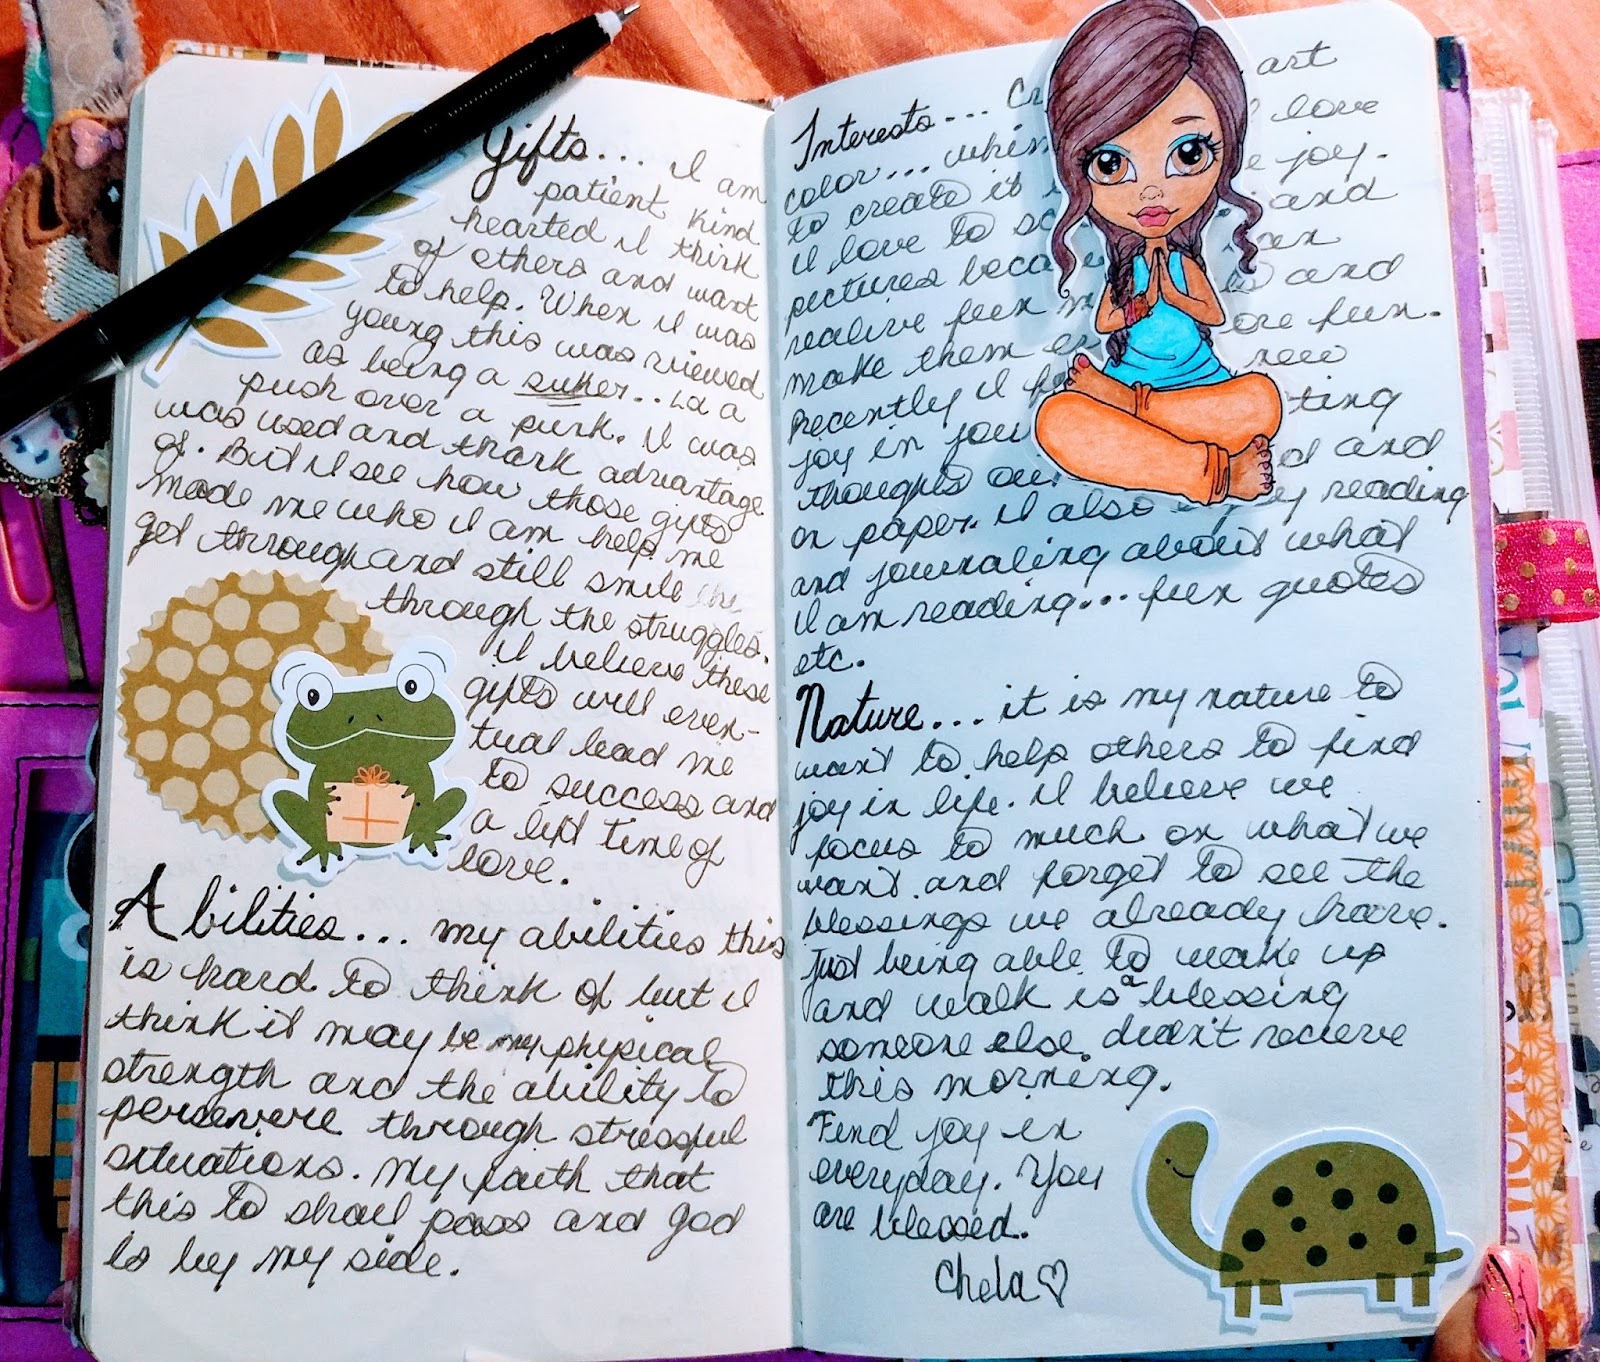 Gifts... I am
patient kind
hearted I think
of others and want
to help. When I was
young this was viewed
as being a suker.. a
push over a punk. I was
was used and thank advantage
of. But I see how those gifts
made me who I am help me
get through and still smile the
through the struggles.
I believe these
gifts will even-
tual lead me
to success and
a lift time of
love.
Abilities... my abilities this
is hard to think of but I
think it may be my physical
strength and the ability to
persevere through stressful
situations. My faith that
this to shall pass and god
is by my side.
Interests... art
color... love
to create it joy.
I love to and
pictures
realive fun and
make them more fun.
Recently I new
joy in
thoughts and
on paper. I also reading
and journaling about what
I am reading... fun quotes
etc.
Nature... it is my nature to
want to help others to find
joy in life. I believe we
focus to much on what we
want and forget to see the
blessings we already have.
Just being able to wake up
and walk is a blessing
someone else didn't recieve
this morning.
Find joy in
everyday. You
are blessed.
Chela